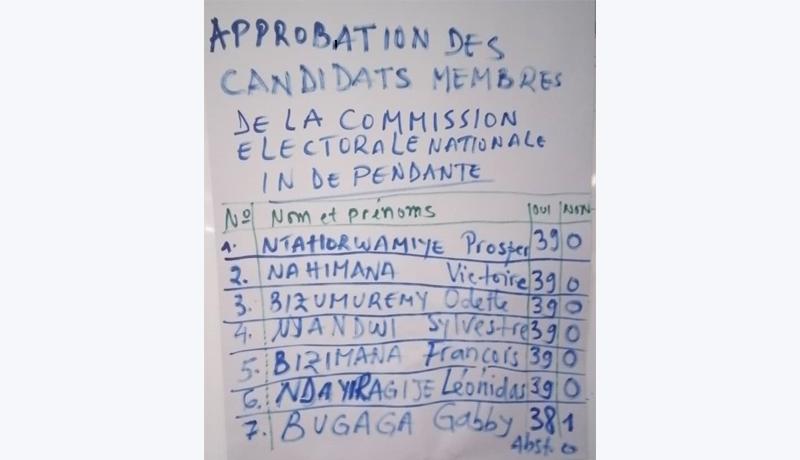 APPROBATION DES
CANDIDATS MEMBRES
DE LA COMMISSION
ELECTORALE NATIONALE
INDEPENDANTE
Nº Nom et prénoms OUI NON
1. NTAHORWAMIYE Prosper 39 0
2. NAHIMANA Victoire 39 0
3. BIZUMUREMY Odette 39 0
4. NYANDWI Sylvestre 39 0
5. BIZIMANA François 39 0
6. NDAYIRAGIJE Léonidas 39 0
7. BUGAGA Gabby 38 1
Abst. 0